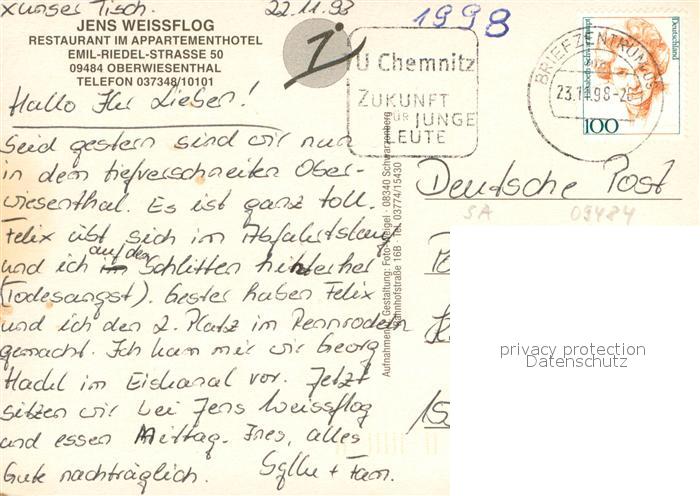 x unser Tisch.
22.11.93
1998
JENS WEISSFLOG
RESTAURANT IM APPARTEMENTHOTEL
EMIL-RIEDEL-STRASSE 50
09484 OBERWIESENTHAL
TELEFON 037348/10101
U Chemnitz
ZUKUNFT
FÜR JUNGE
LEUTE
BRIEFZENTRUM
23.11.98-20
Deutschland
100
Hallo Ihr Lieben!
Seid gestern sind wir nun
in dem tiefverschneiten Ober-
wiesenthal. Es ist ganz toll.
Felix übt sich im Abfahrtslauf
und ich auf den Schlitten hinterher
(Todesangst). Gester haben Felix
und ich den 2. Platz im Rennrodeln
gemacht. Ich kam mir wir Georg
Hackl im Eiskanal vor. Jetzt
sitzen wir bei Jens Weissflog
und essen Mittag. Ines, alles
Gute nachträglich.
+ Fam.
Aufnahmen + Gestaltung: Foto-Weigel · 08340 Schwarzenberg
Bahnhofstraße 16B · Tel. 03774/15430
Deutsche Post
SA 09484
privacy protection
Datenschutz